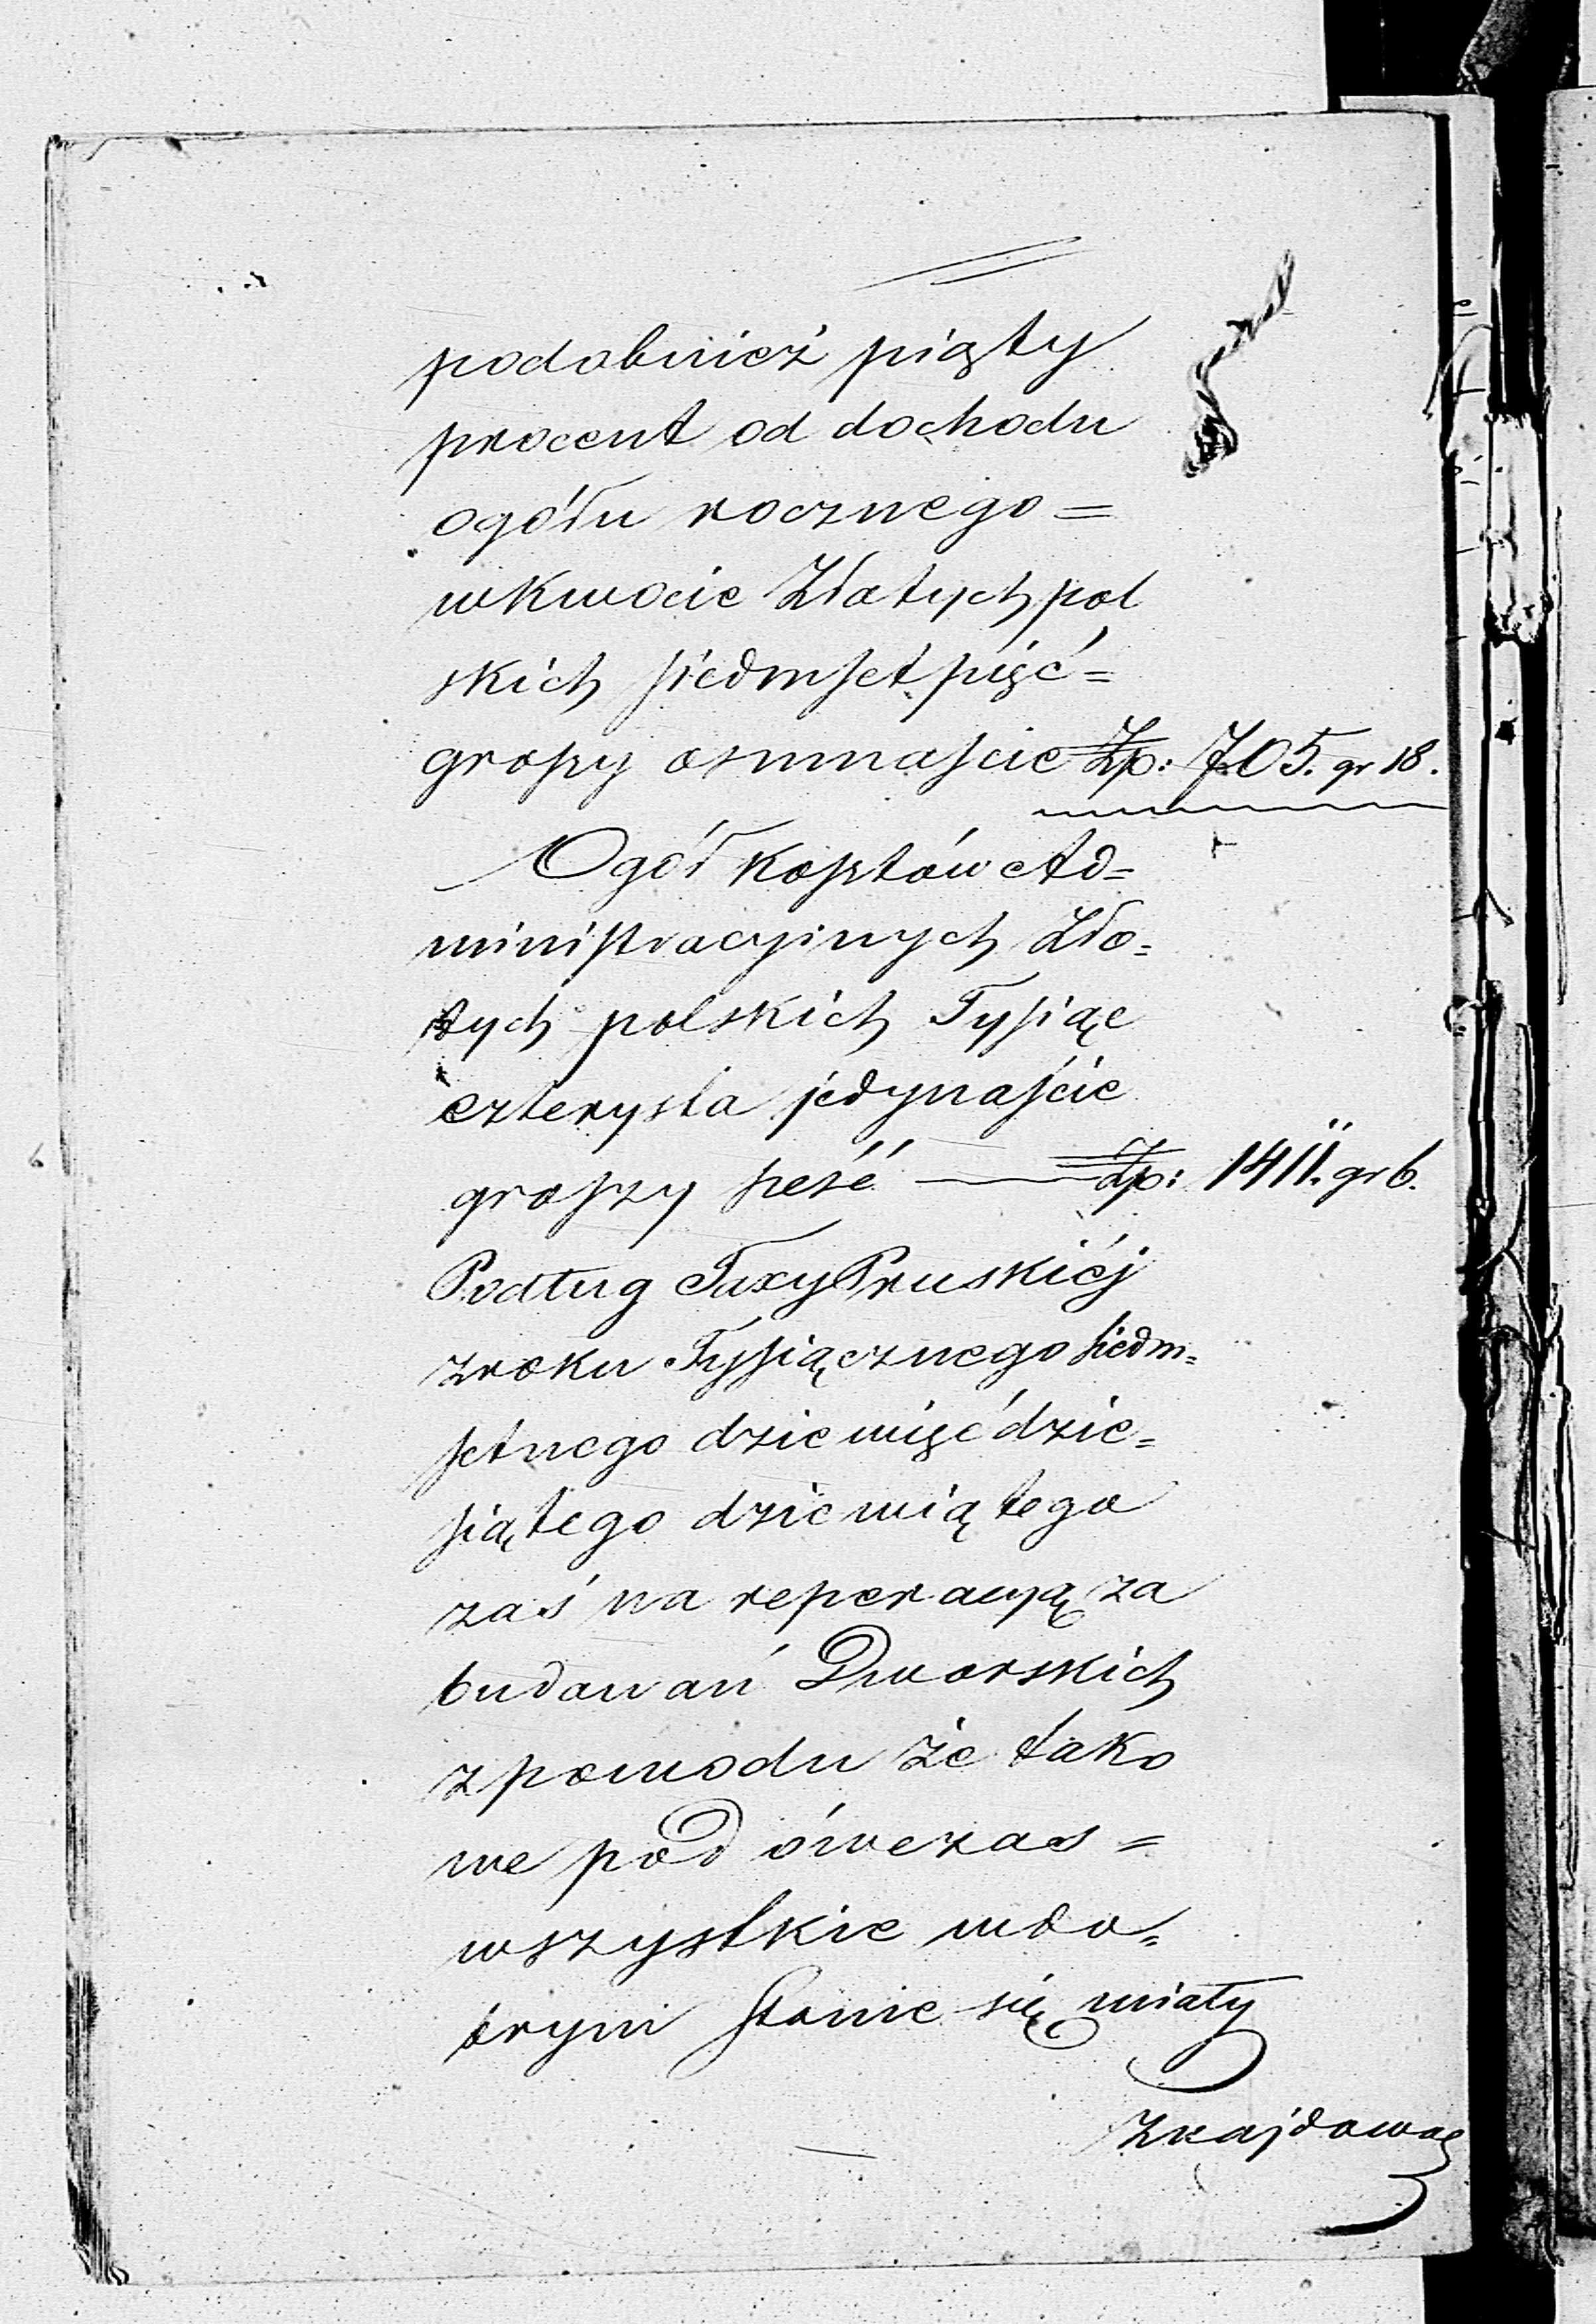 podobnież piąty
procent od dochodu
ogółu rocznego =
w Kwocie Złotych pol
skich siedmset pięć =
groszy osmnaście Zp: 705. gr 18.
Ogół kosztów Ad=
ministracyinych Zło=
tych polskich Tysiąc
czterysta jedynaście
groszy sześć — Zp: 1411. gr 6.
Podług Taxy Pruskiéj
z roku Tysiącznego siedm=
setnego dziewięćdzie=
siątego dziewiątego
zaś na reperacyą za
budowań Dworskich
z powodu że tako
we pod ówczas =
wszystkie w do=
brym stanie się miały
znajdować